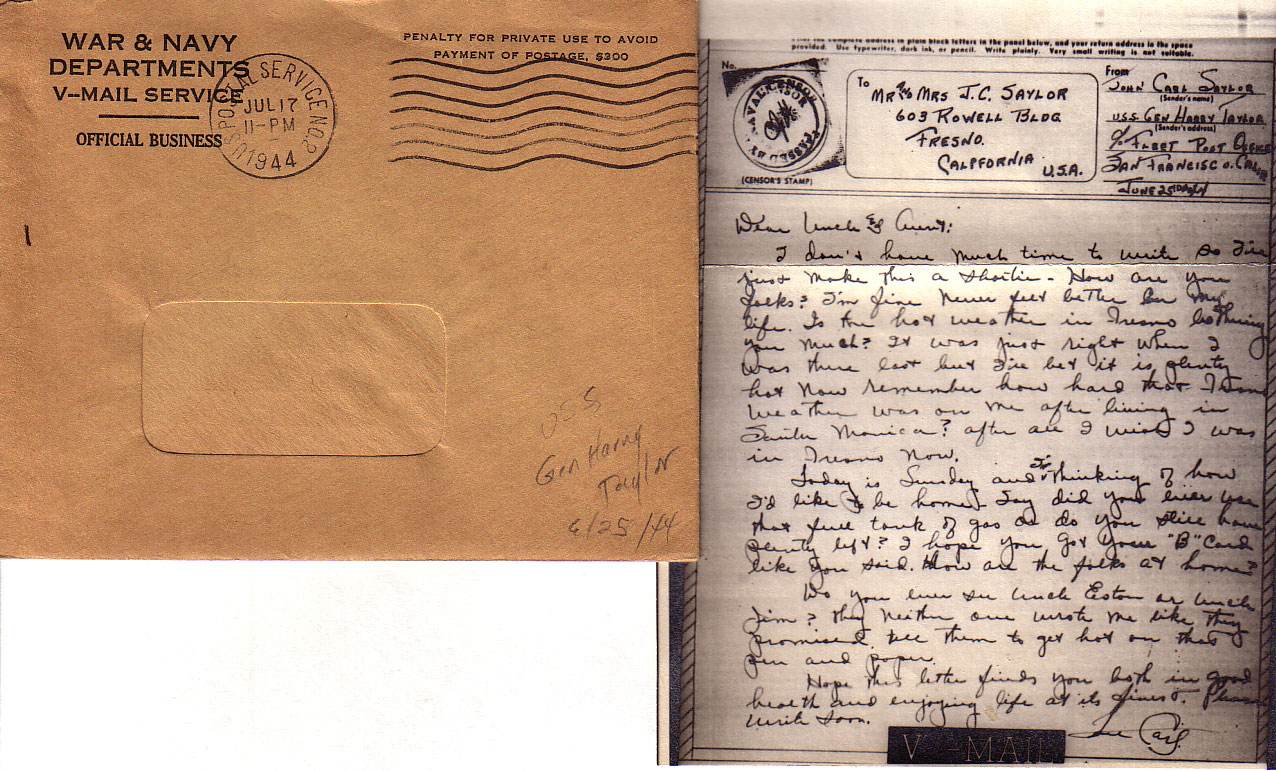 WAR & NAVY
DEPARTMENTS
V–MAIL SERVICE
OFFICIAL BUSINESS
U.S. POSTAL SERVICE NO. 2
JUL 17
11–PM
1944
PENALTY FOR PRIVATE USE TO AVOID
PAYMENT OF POSTAGE, $300
USS
Gen Harry
Taylor
6/25/44
complete address in plain block letters in the panel below, and your return address in the space
provided. Use typewriter, dark ink, or pencil. Write plainly. Very small writing is not suitable.
No.
NAVAL CENSOR
PASSED BY
(CENSOR'S STAMP)
To
MR AND MRS J.C. SAYLOR
603 ROWELL BLDG
FRESNO.
CALIFORNIA
U.S.A.
From
JOHN CARL SAYLOR
(Sender's name)
USS GEN HARRY TAYLOR
(Sender's address)
c/o FLEET POST OFFICE
SAN FRANCISCO. CALIF
JUNE 25
Dear Uncle & Aunt:
I don't have much time to write so I'll
just make this a shortie - How are you
folks? I'm fine never felt better in my
life. Is the hot weather in Fresno bothering
you much? It was just right when I
was there last but I'll bet it is plenty
hot now remember how hard that Fresno
weather was on me after living in
Santa Monica? after all I wish I was
in Fresno now.
Today is Sunday and I'm thinking of how
I'd like to be home. Say did you ever use
that full tank of gas or do you still have
plenty left? I hope you got your "B" Card
like you said. How are the folks at home?
Do you ever see Uncle Eston or Uncle
Jim? They neither one wrote me like they
promised tell them to get hot on that
pen and paper.
Hope this letter finds you both in good
health and enjoying life at its finest. Please
write soon.
Carl.
V–MAIL